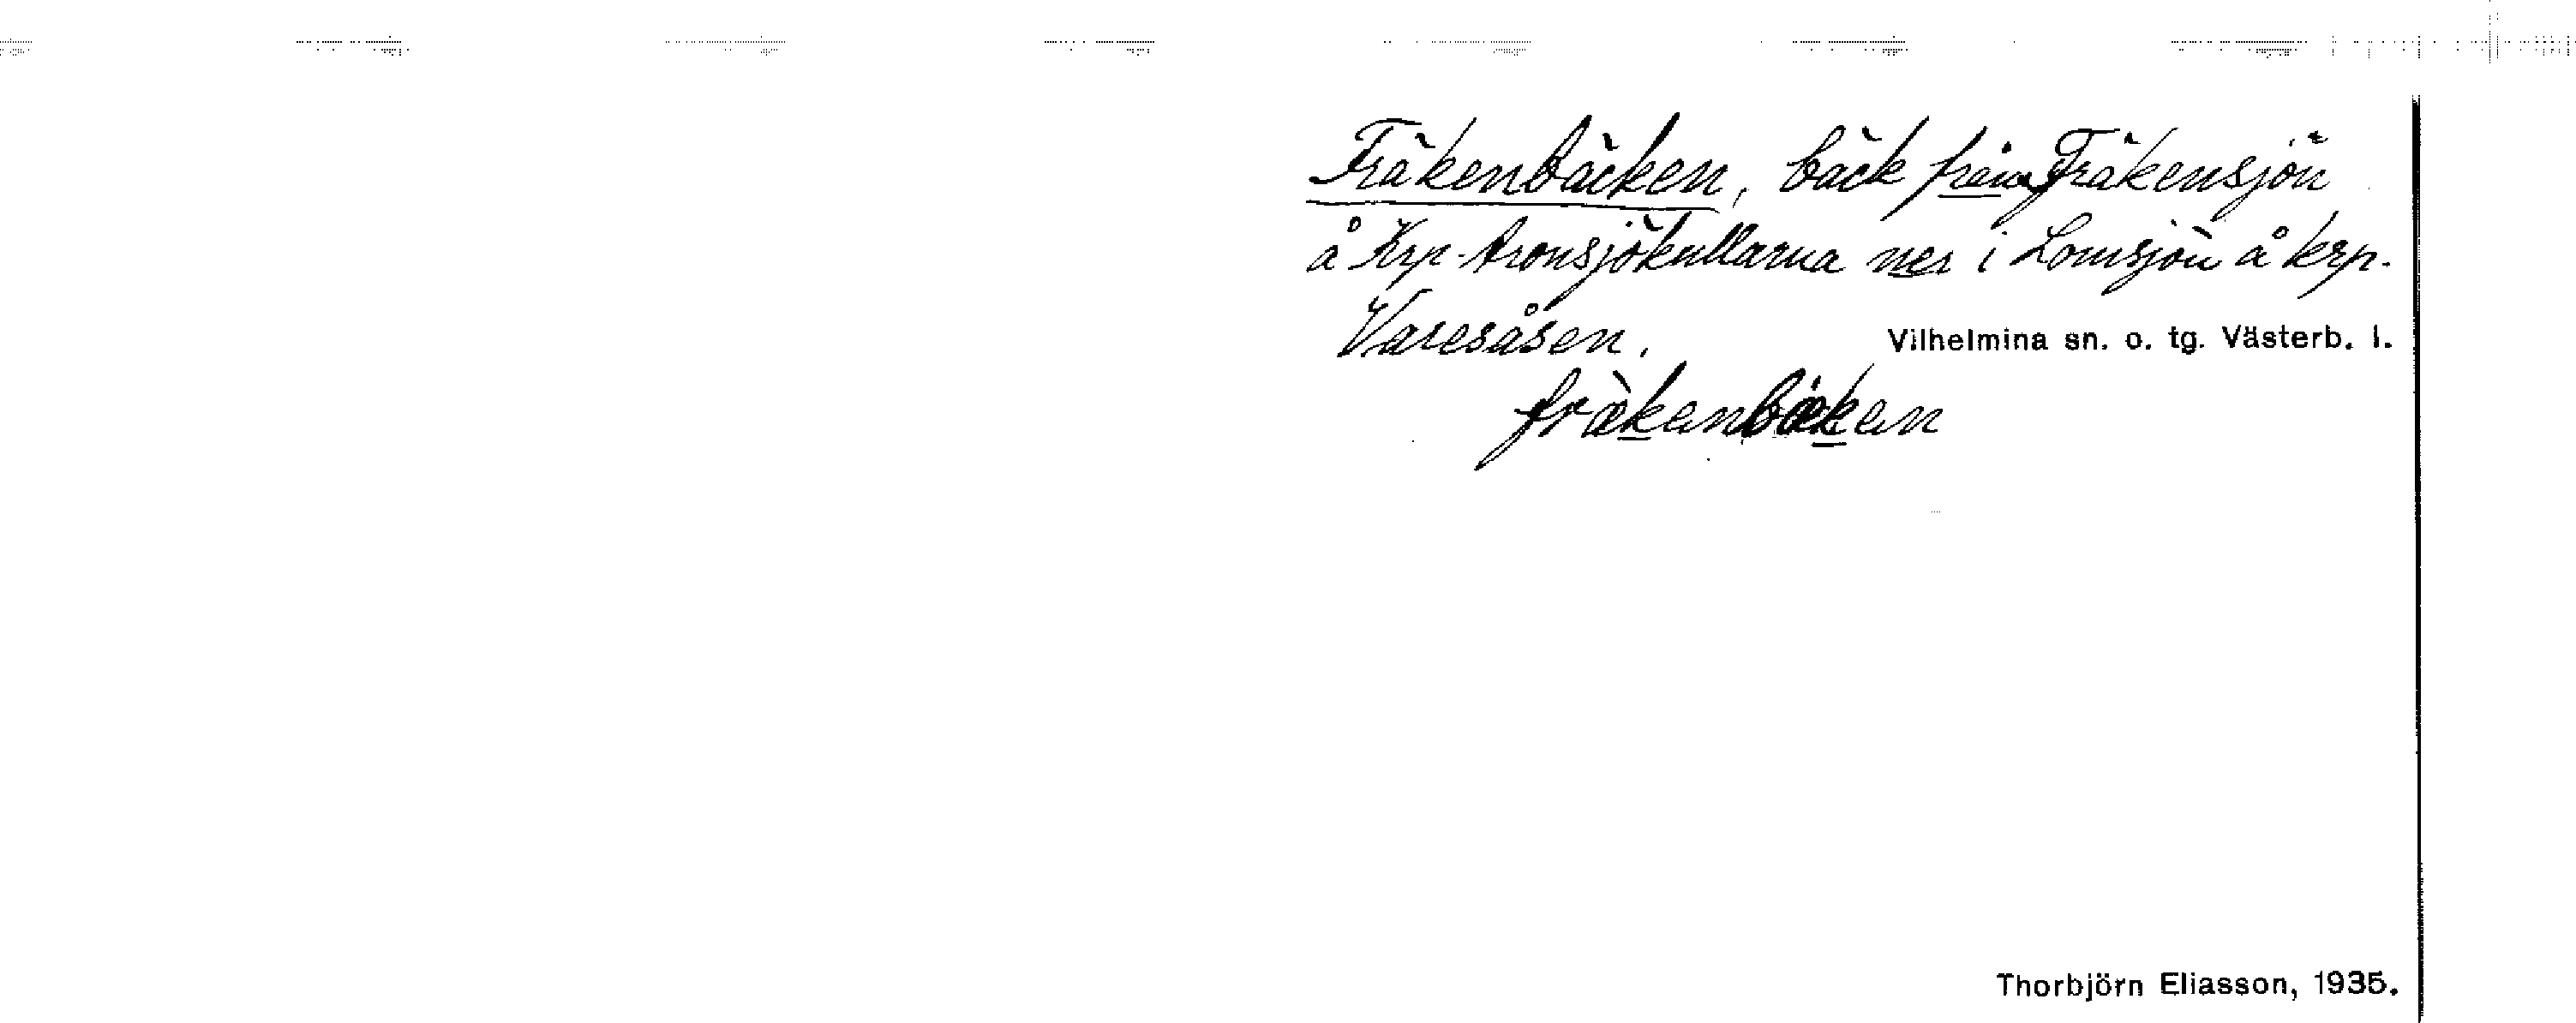 Fräkenbäcken, bäck från Fräkensjön
å Krp. Aronsjökullarna ner i Lomsjön å krp.
Varesåsen.
Vilhelmina sn. o. tg. Västerb. l.
fræ̀kenbæken
Thorbjörn Eliasson, 1935.